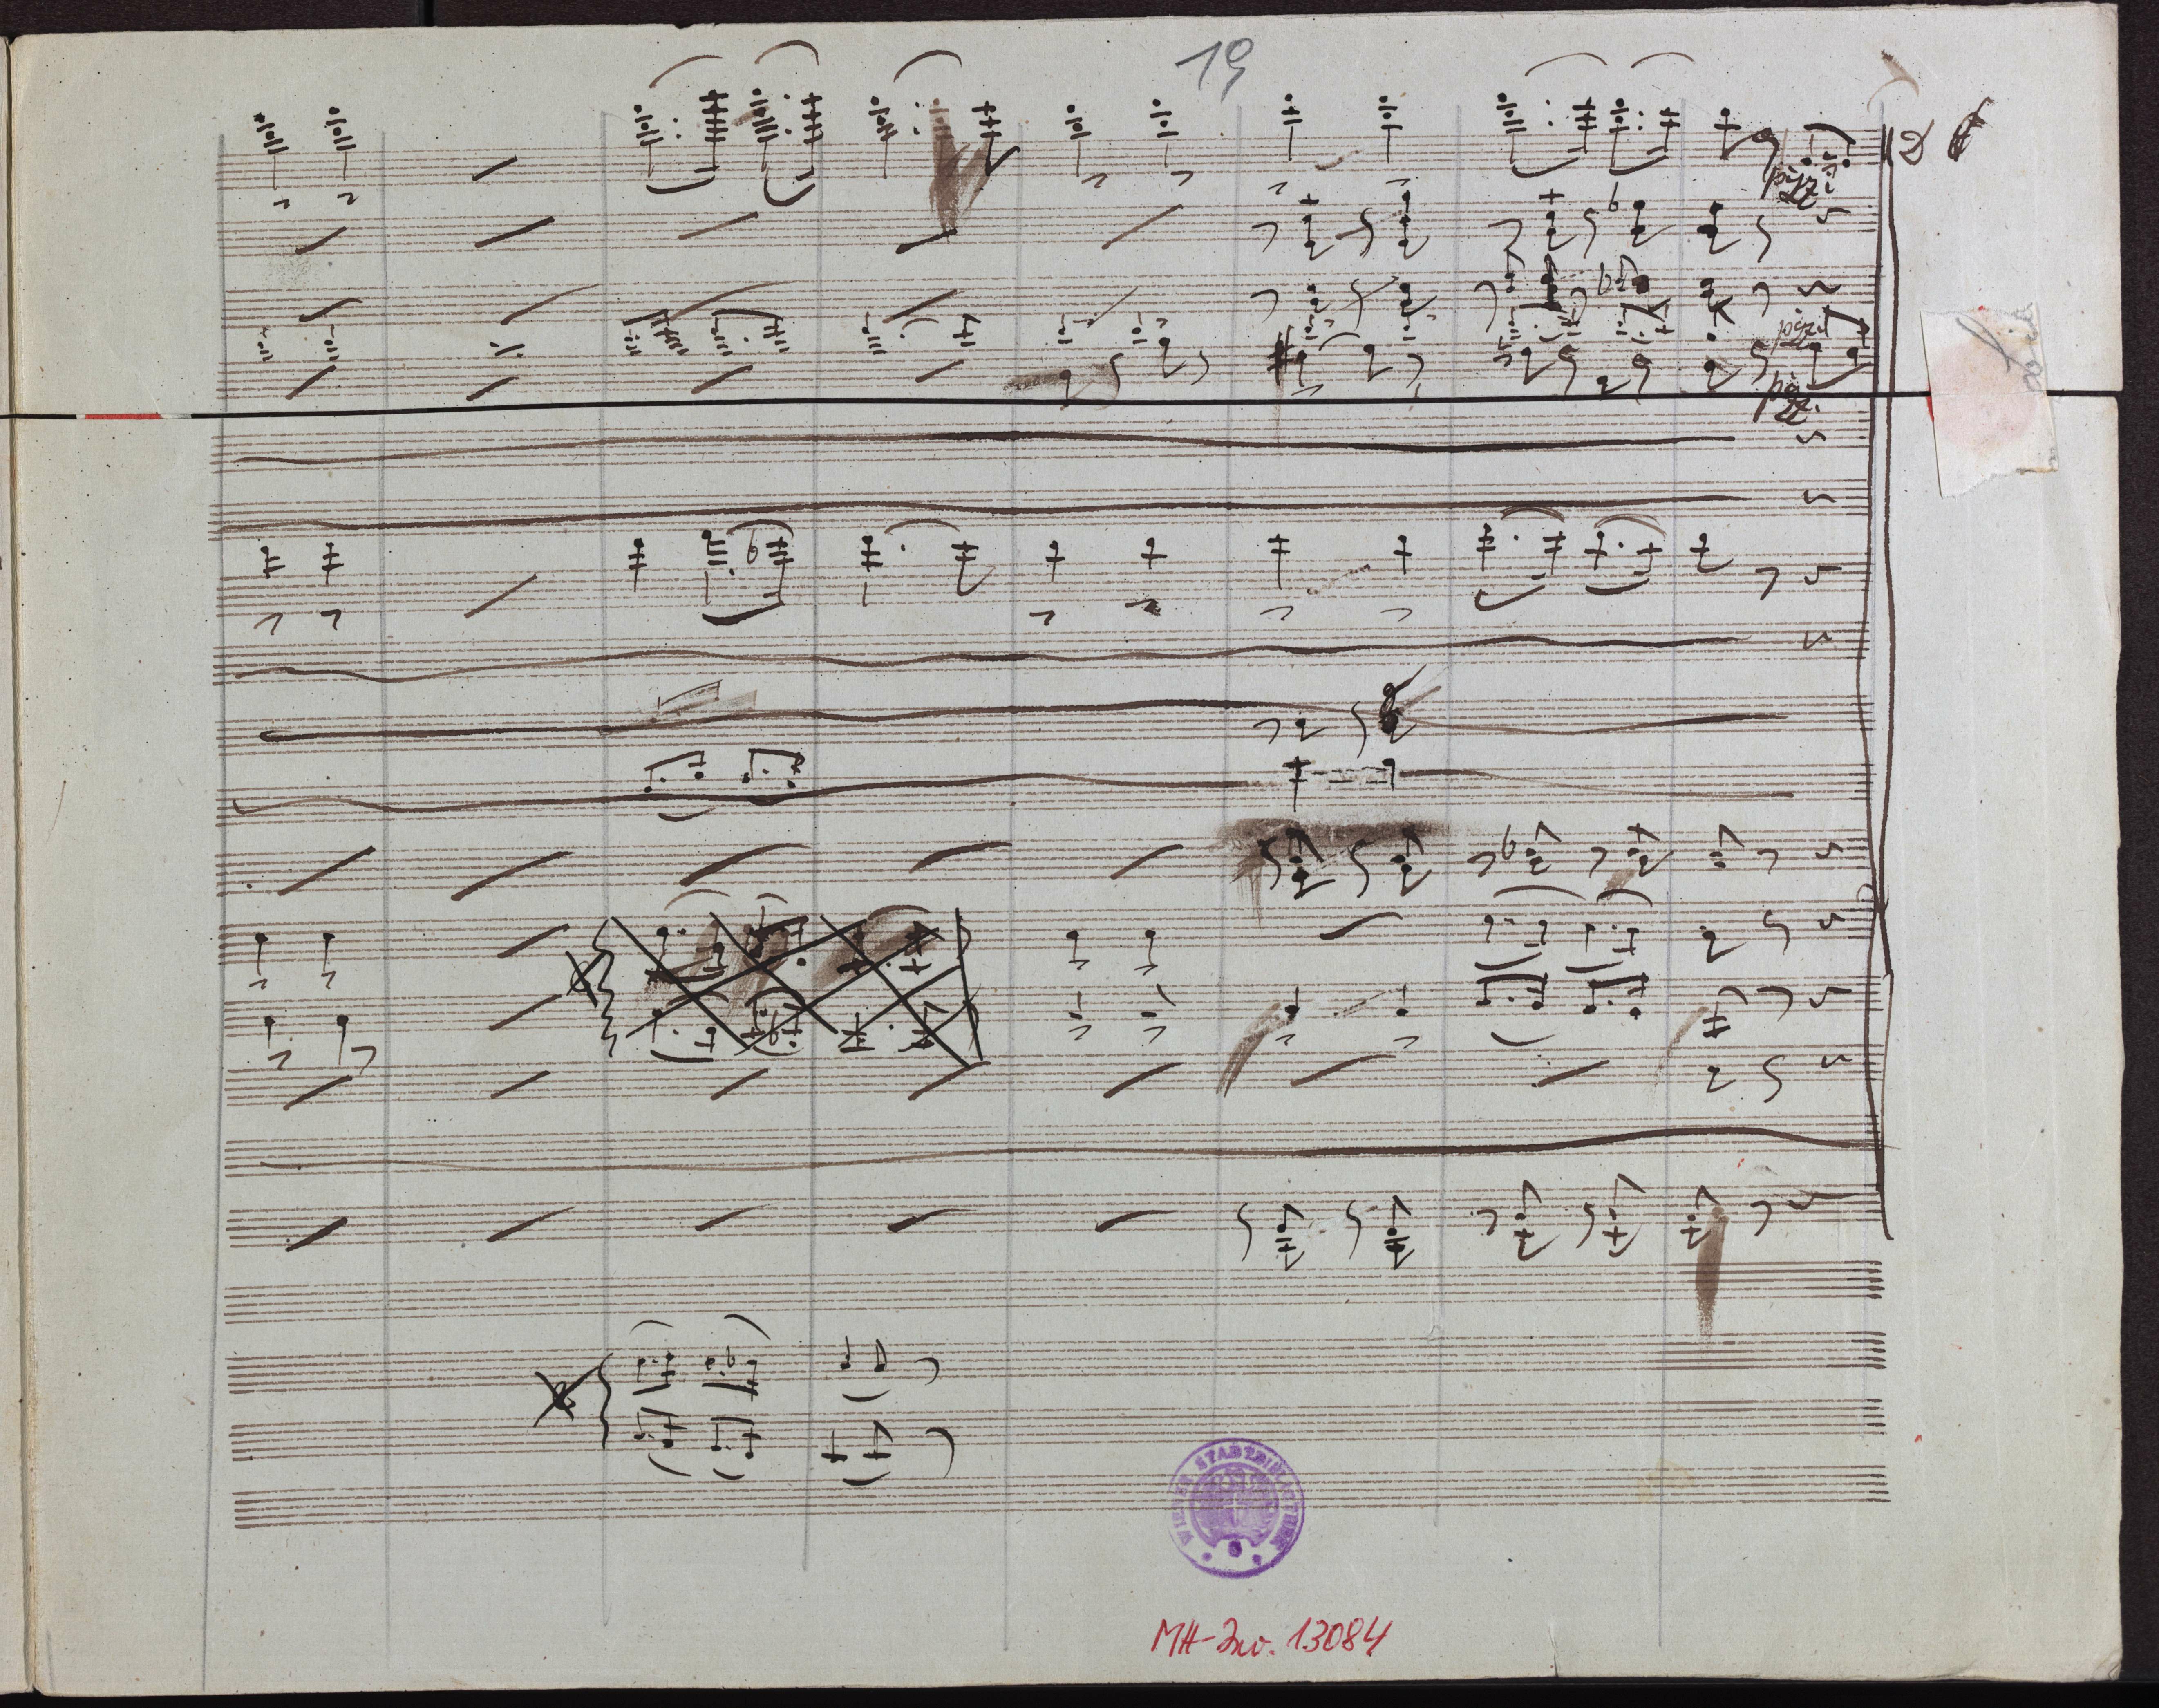 19
pizz.
pizz.
pizz.
WIENER STADTBIBLIOTHEK
MH-Inv. 13084